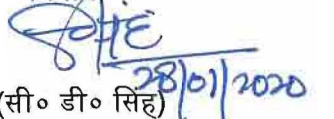 सिंह
28/01/2020
(सी० डी० सिंह)